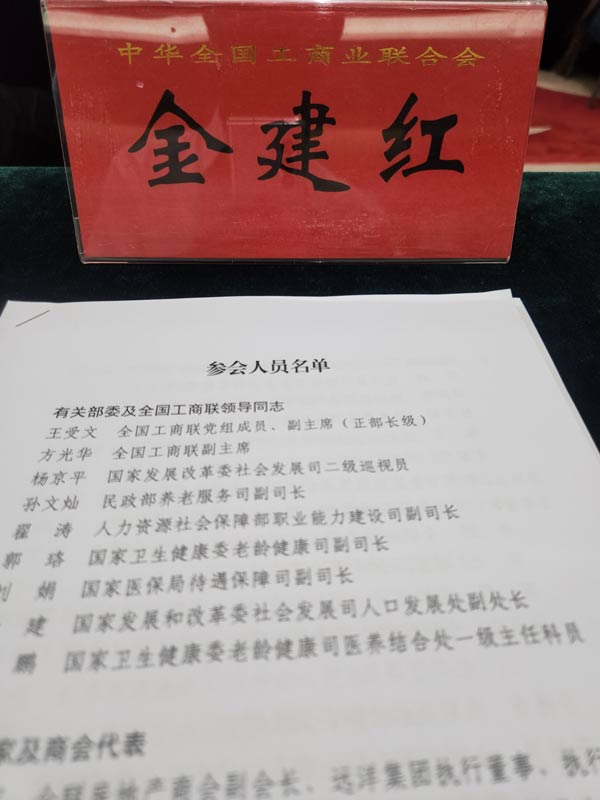 中华全国工商业联合会
金建红
参会人员名单
有关部委及全国工商联领导同志
王受文 全国工商联党组成员、副主席（正部长级）
方光华 全国工商联副主席
杨京平 国家发展改革委社会发展司二级巡视员
孙文灿 民政部养老服务司副司长
翟 涛 人力资源社会保障部职业能力建设司副司长
郭 珞 国家卫生健康委老龄健康司副司长
刘 娟 国家医保局待遇保障司副司长
建 国家发展和改革委社会发展司人口发展处副处长
鹏 国家卫生健康委老龄健康司医养结合处一级主任科员
家及商会代表
全联房地产商会副会长、远洋集团执行董事、执行